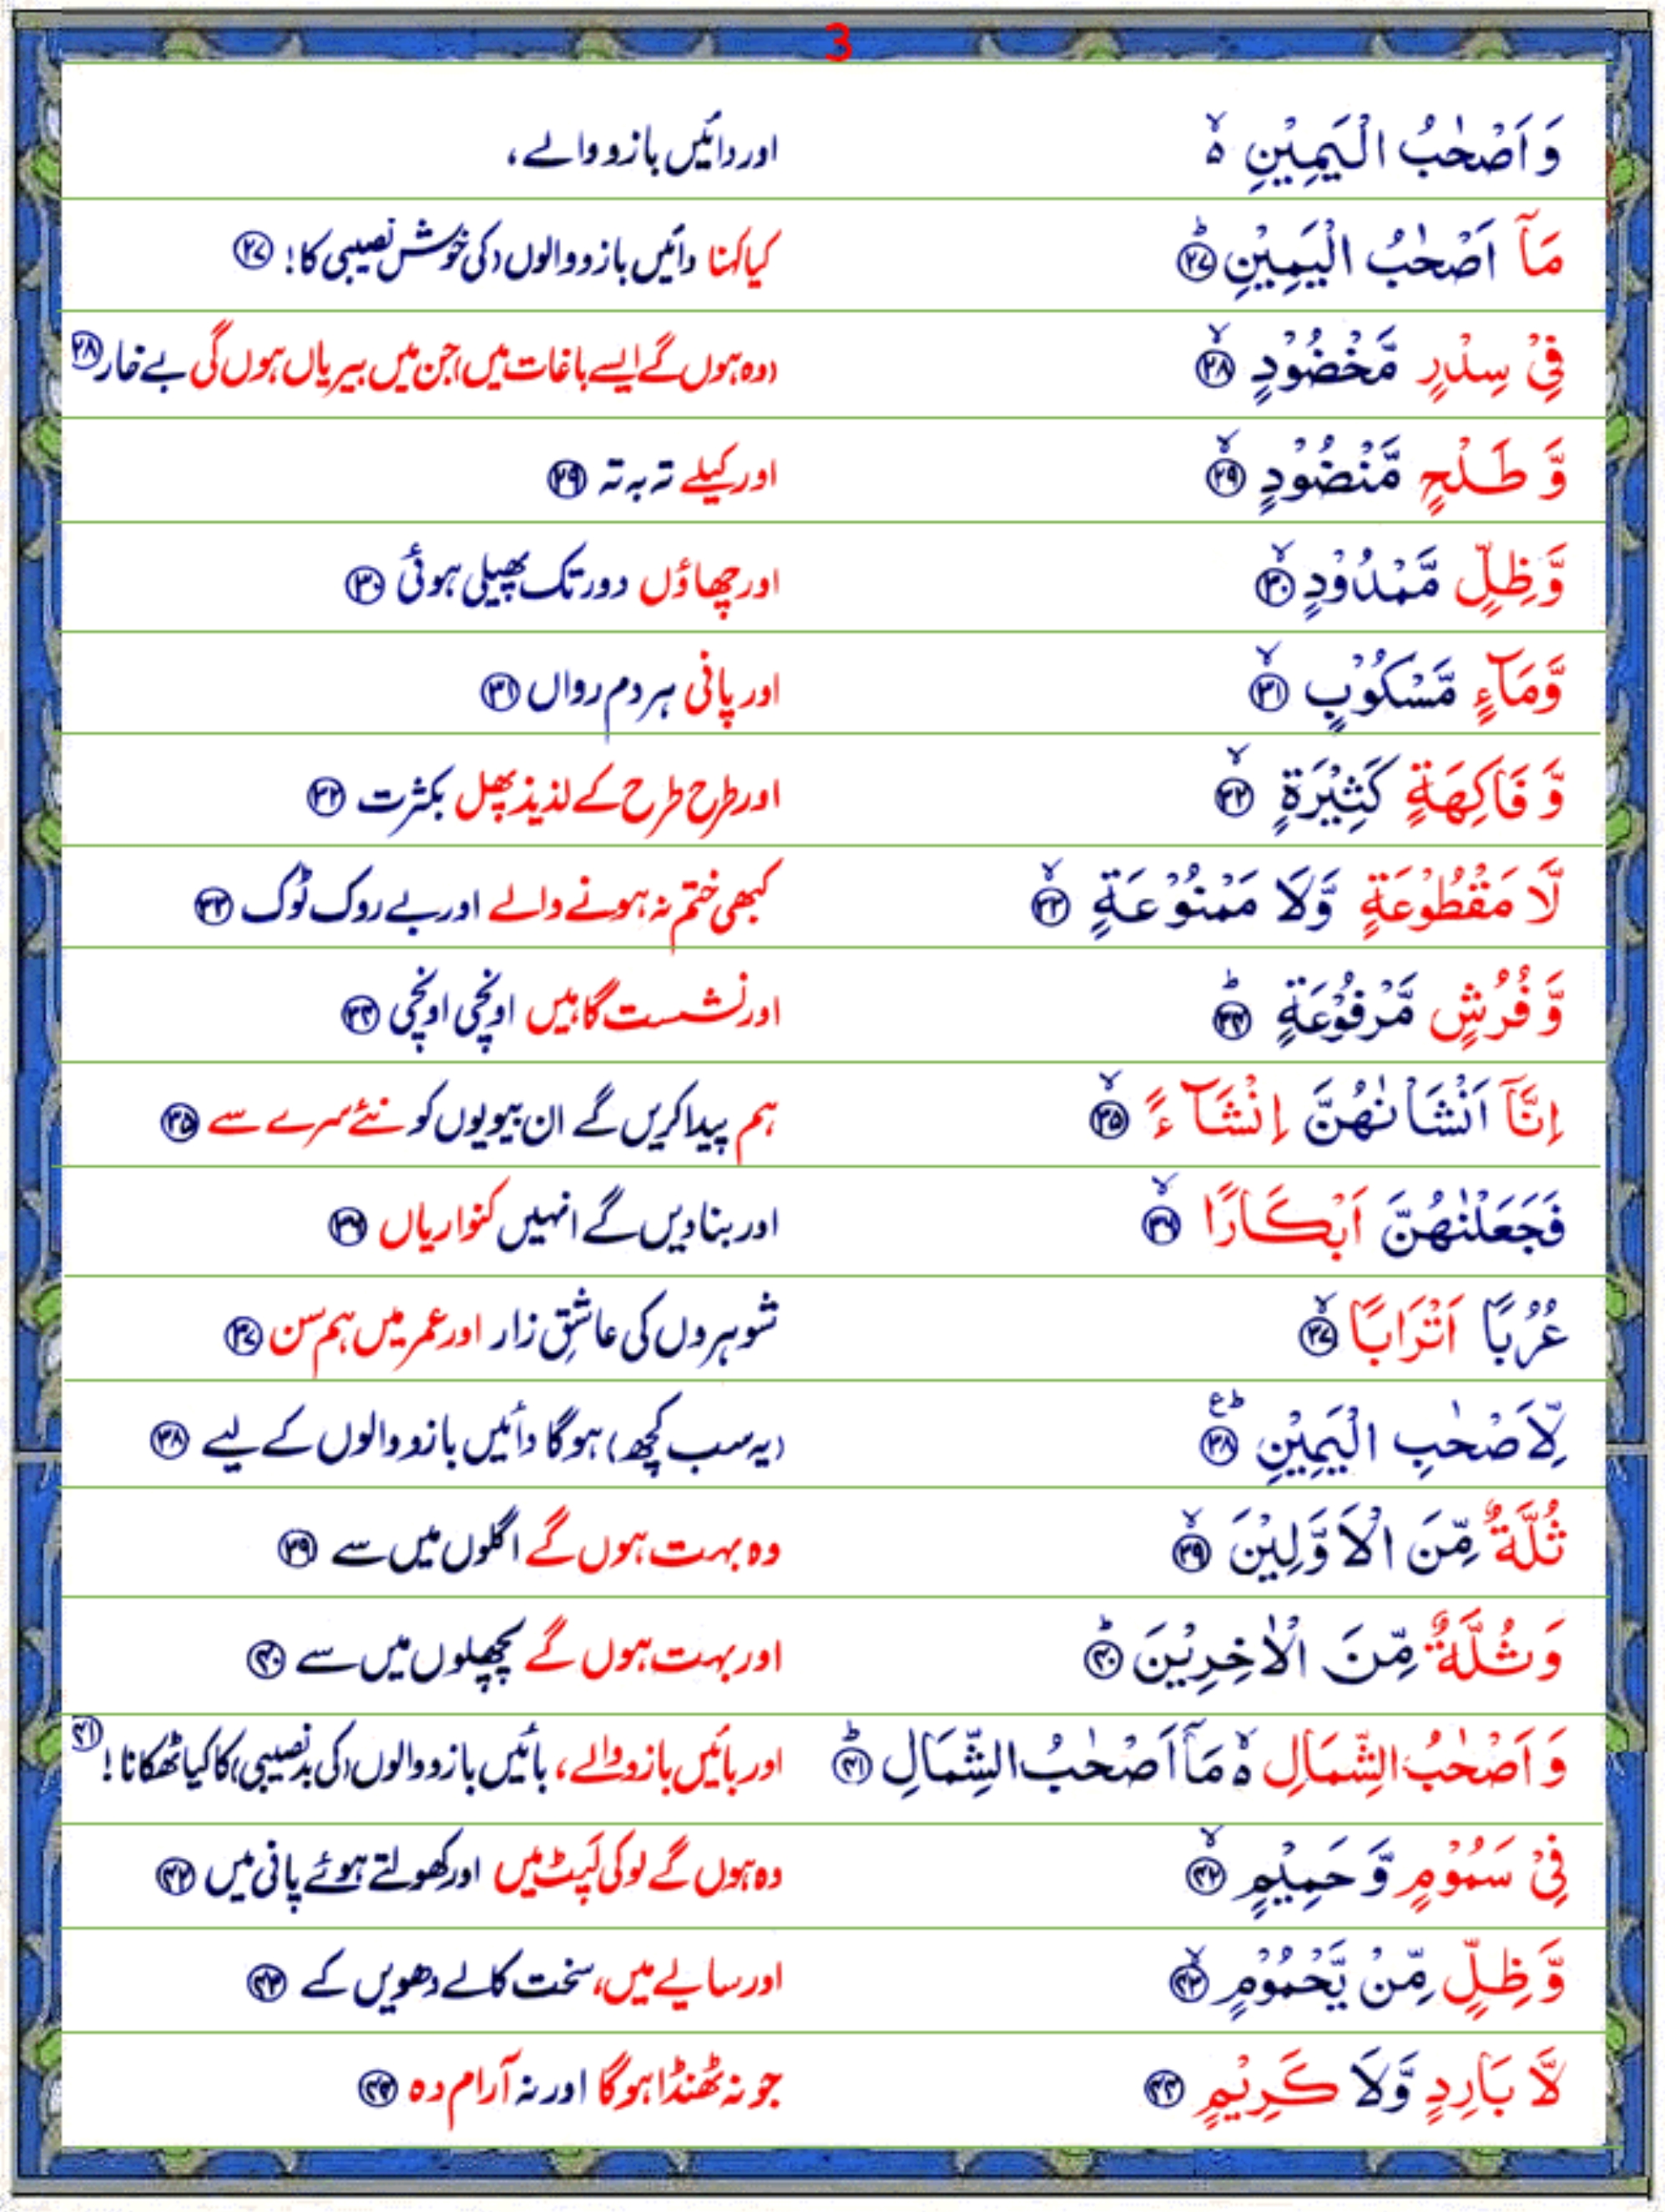 3
وَ اَصْحٰبُ الْيَمِيْنِ ۙ۬ اور دائیں بازو والے،
مَاۤ اَصْحٰبُ الْيَمِيْنِؕ ﴿۲۷﴾ کیا کہنا دائیں بازو والوں (کی خوش نصیبی کا! ﴿۲۷﴾
فِىْ سِدْرٍ مَّخْضُوْدٍۙ ﴿۲۸﴾ (وہ ہوں گے ایسے باغات میں) جن میں بیریاں ہوں گی بے خار ﴿۲۸﴾
وَّ طَلْحٍ مَّنْضُوْدٍۙ ﴿۲۹﴾ اور کیلے تہ بہ تہ ﴿۲۹﴾
وَّ ظِلٍّ مَّمْدُوْدٍۙ ﴿۳۰﴾ اور چھاؤں دور تک پھیلی ہوئی ﴿۳۰﴾
وَّ مَآءٍ مَّسْكُوْبٍۙ ﴿۳۱﴾ اور پانی ہر دم رواں ﴿۳۱﴾
وَّ فَاكِهَةٍ كَثِيْرَةٍۙ ﴿۳۲﴾ اور طرح طرح کے لذیذ پھل بکثرت ﴿۳۲﴾
لَّا مَقْطُوْعَةٍ وَّلَا مَمْنُوْعَةٍۙ ﴿۳۳﴾ کبھی ختم نہ ہونے والے اور بے روک ٹوک ﴿۳۳﴾
وَّ فُرُشٍ مَّرْفُوْعَةٍؕ ﴿۳۴﴾ اور نشست گاہیں اونچی اونچی ﴿۳۴﴾
اِنَّاۤ اَنْشَاْنٰهُنَّ اِنْشَآءًۙ ﴿۳۵﴾ ہم پیدا کریں گے ان بیویوں کو نئے سرے سے ﴿۳۵﴾
فَجَعَلْنٰهُنَّ اَبْكَارًاۙ ﴿۳۶﴾ اور بنا دیں گے انہیں کنواریاں ﴿۳۶﴾
عُرُبًا اَتْرَابًاۙ ﴿۳۷﴾ شوہروں کی عاشقِ زار اور عمر میں ہم سن ﴿۳۷﴾
لِّاَصْحٰبِ الْيَمِيْنِؕ ع ﴿۳۸﴾ (یہ سب کچھ) ہوگا دائیں بازو والوں کے لیے ﴿۳۸﴾
ثُلَّةٌ مِّنَ الْاَوَّلِيْنَۙ ﴿۳۹﴾ وہ بہت ہوں گے اگلوں میں سے ﴿۳۹﴾
وَ ثُلَّةٌ مِّنَ الْاٰخِرِيْنَؕ ﴿۴۰﴾ اور بہت ہوں گے پچھلوں میں سے ﴿۴۰﴾
وَ اَصْحٰبُ الشِّمَالِ ۙ۬ مَاۤ اَصْحٰبُ الشِّمَالِؕ ﴿۴۱﴾ اور بائیں بازو والے، بائیں بازو والوں (کی بدنصیبی) کا کیا ٹھکانا! ﴿۴۱﴾
فِىْ سَمُوْمٍ وَّ حَمِيْمٍۙ ﴿۴۲﴾ وہ ہوں گے لو کی لَپٹ میں اور کھولتے ہوئے پانی میں ﴿۴۲﴾
وَّ ظِلٍّ مِّنْ يَّحْمُوْمٍۙ ﴿۴۳﴾ اور سایے میں، سخت کالے دھویں کے ﴿۴۳﴾
لَّا بَارِدٍ وَّلَا كَرِيْمٍ ﴿۴۴﴾ جو نہ ٹھنڈا ہوگا اور نہ آرام دہ ﴿۴۴﴾